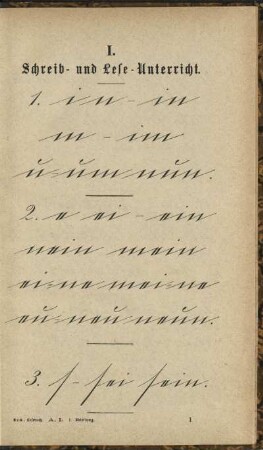 I.
Schreib- und Lese-Unterricht.
1. i n - in
m - im
u - um nun.
2. e ei - ein
nein mein
ei-ne mei-ne
eu-neu neun.
3. s - sei sein.
A. I. 1